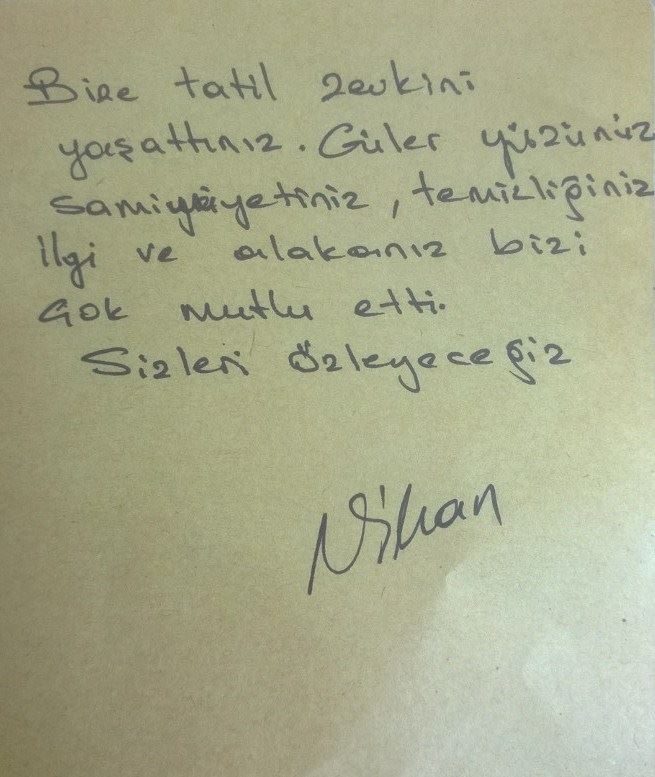 Bize tatil zevkini
yaşattınız. Güler yüzünüz
samimiyetiniz, temizliğiniz
ilgi ve alakanız bizi
Çok mutlu etti.
Sizleri özleyeceğiz
Nihan